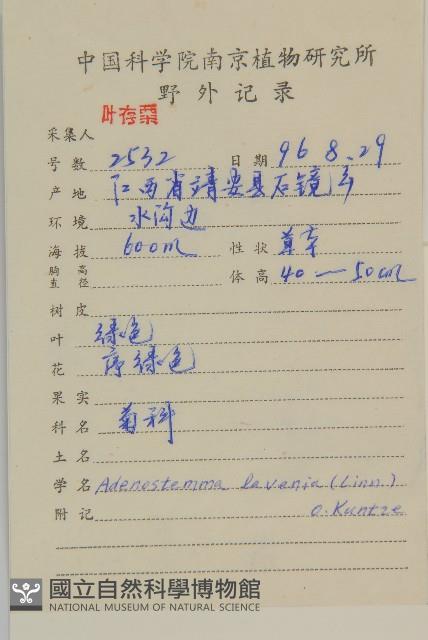 中国科学院南京植物研究所
野外记录
叶存粟
采集人
号数 2532 日期 96.8.29
产地 江西省靖安县石镜
环境 水沟边
海拔 600m 性状 草本
胸高直径 体高 40—50cm
树皮
叶 绿色
花 绿色
果实
科名 菊科
土名
学名 Adenostemma lavenia (Linn.)
附记 O. Kuntze
國立自然科學博物館
NATIONAL MUSEUM OF NATURAL SCIENCE